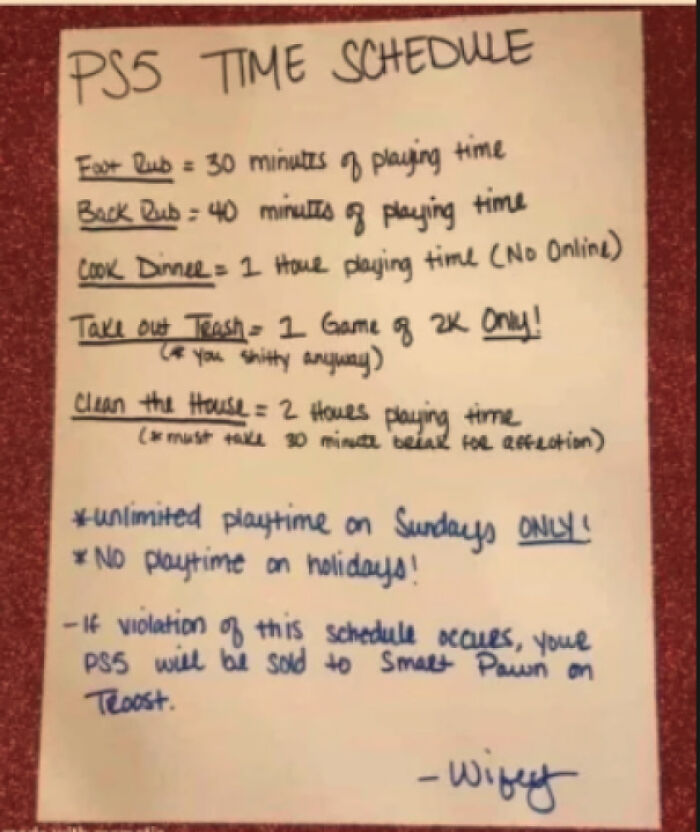 PS5 TIME SCHEDULE
Foot Rub = 30 minutes of playing time
Back Rub = 40 minutes of playing time
Cook Dinner = 1 Hour playing time (No Online)
Take out Trash = 1 Game of 2K Only!
(* you shitty anyway)
Clean the House = 2 Hours playing time
(* must take 30 minute break for affection)
*unlimited playtime on Sundays ONLY!
*No playtime on holidays!
- If violation of this schedule occurs, your
PS5 will be sold to Smart Pawn on
Troost.
- Wifey